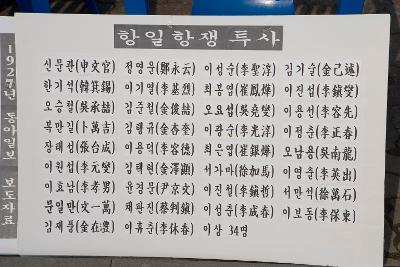 항일항쟁투사
신문관(申文官) 정영운(鄭永云) 이성순(李聖淳) 김기술(金己述)
한기석(韓箕錫) 이기열(李基烈) 최봉엽(崔鳳燁) 이진섭(李鎭燮)
오승철(吳承喆) 김준길(金俊喆) 오요섭(吳堯燮) 이용선(李容先)
복만길(卜萬吉) 김행규(金杏奎) 이광순(李光淳) 이정춘(李正春)
장태성(張台成) 이용덕(李容德) 최은엽(崔銀燁) 오남용(吳南龍)
이원섭(李元燮) 김택현(金澤顯) 서가마(徐加馬) 이영출(李英出)
이효남(李孝男) 윤경문(尹京文) 이진철(李鎭哲) 서만석(徐萬石)
문일만(文一萬) 채판진(蔡判鎭) 이성춘(李成春) 이보동(李保東)
김재풍(金在豊) 이휴춘(李休春) 이상 34명
1927년 동아일보 보도자료